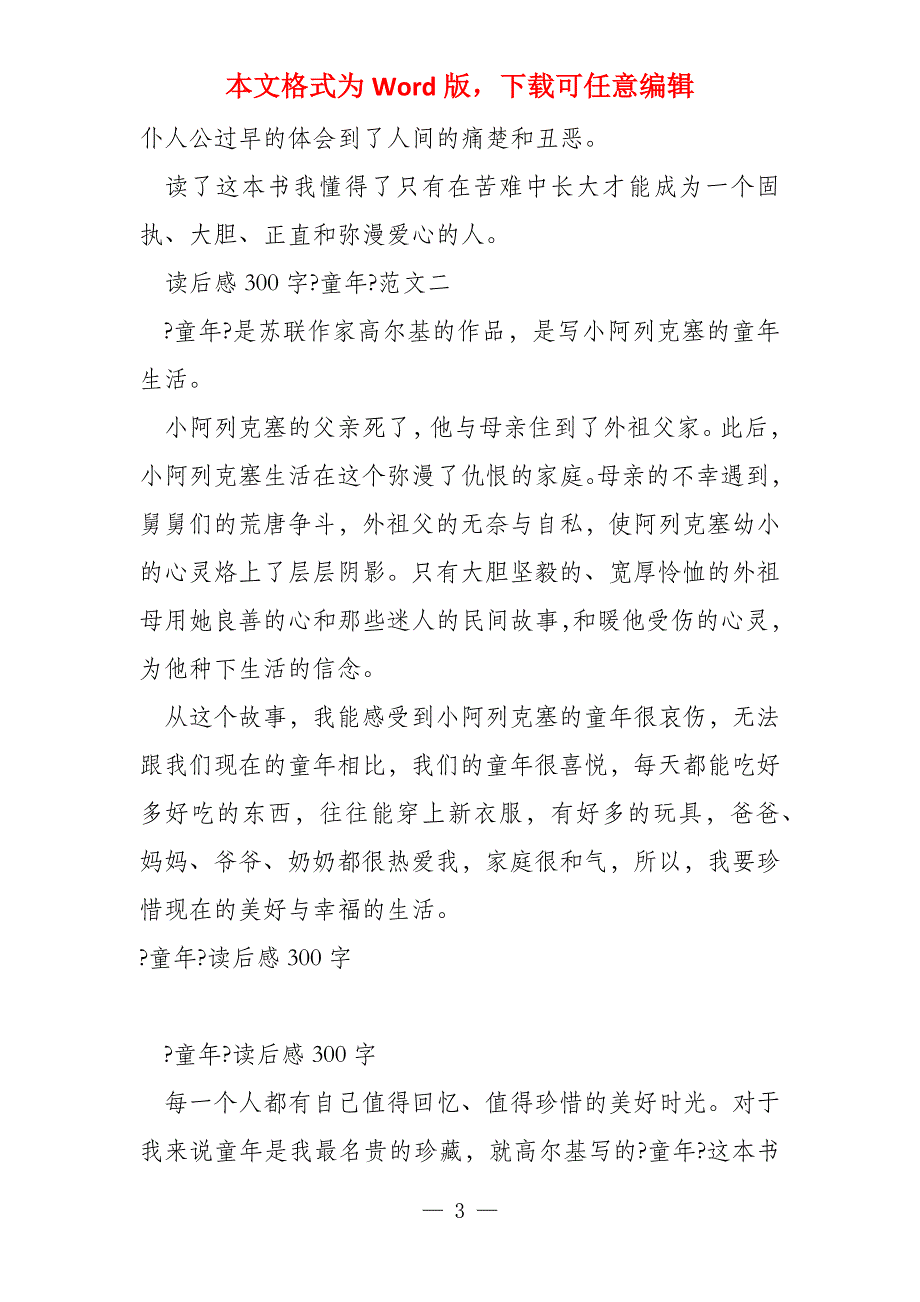 本文格式为 Word 版，下载可任意编辑
仆人公过早的体会到了人间的痛楚和丑恶。
读了这本书我懂得了只有在苦难中长大才能成为一个固
执、大胆、正直和弥漫爱心的人。
读后感 300 字?童年?范文二
?童年?是苏联作家高尔基的作品，是写小阿列克塞的童年
生活。
小阿列克塞的父亲死了，他与母亲住到了外祖父家。此后，
小阿列克塞生活在这个弥漫了仇恨的家庭。母亲的不幸遇到，
舅舅们的荒唐争斗，外祖父的无奈与自私，使阿列克塞幼小
的心灵烙上了层层阴影。只有大胆坚毅的、宽厚怜恤的外祖
母用她良善的心和那些迷人的民间故事，和暖他受伤的心灵，
为他种下生活的信念。
从这个故事，我能感受到小阿列克塞的童年很哀伤，无法
跟我们现在的童年相比，我们的童年很喜悦，每天都能吃好
多好吃的东西，往往能穿上新衣服，有好多的玩具，爸爸、
妈妈、爷爷、奶奶都很热爱我，家庭很和气，所以，我要珍
惜现在的美好与幸福的生活。
?童年?读后感 300 字
?童年?读后感 300 字
每一个人都有自己值得回忆、值得珍惜的美好时光。对于
我来说童年是我最名贵的珍藏，就高尔基写的?童年?这本书
— 3 —